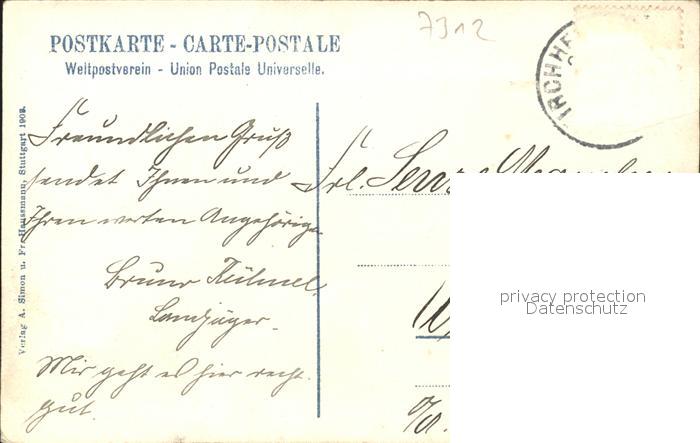 7312
POSTKARTE - CARTE-POSTALE
Weltpostverein - Union Postale Universelle.
Verlag A. Simon u. Fr. Hausmann, Stuttgart 1903.
Freundlichen Gruß
sendet Ihnen und
Ihren werten Angehörigen
Bruno
Landjäger.
Mir geht es hier recht
gut.
Frl.
privacy protection
Datenschutz